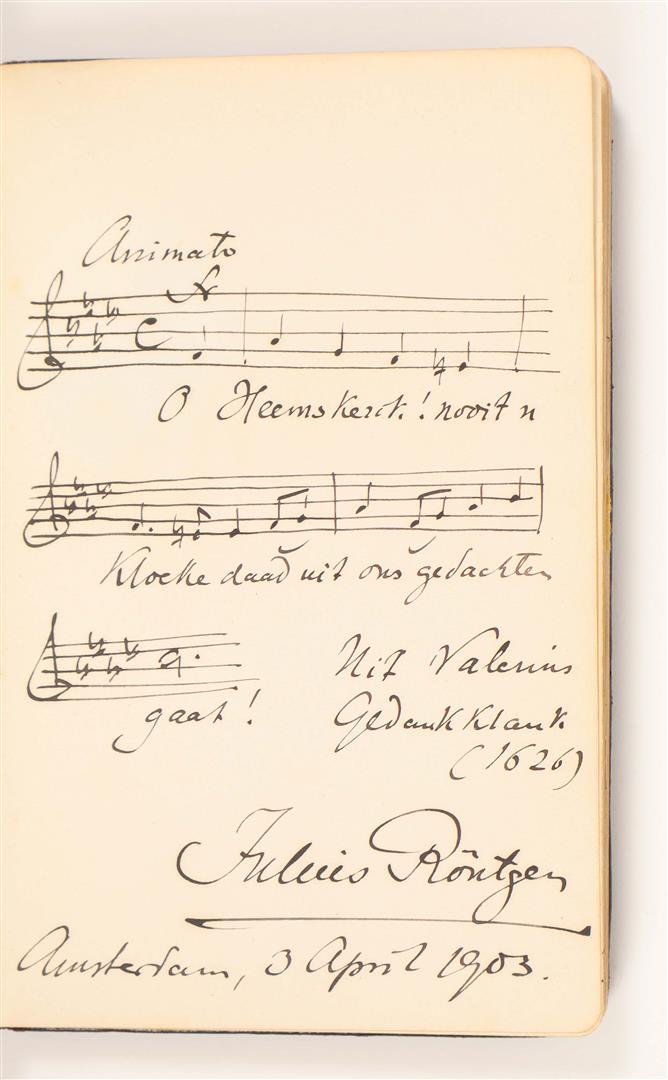 Animato
f
O Heemskerck! nooit u
Kloeke daad uit ons gedachten
gaat!
Uit Valerius
Gedenkklank
(1626)
Julius Röntgen
Amsterdam, 3 April 1903.